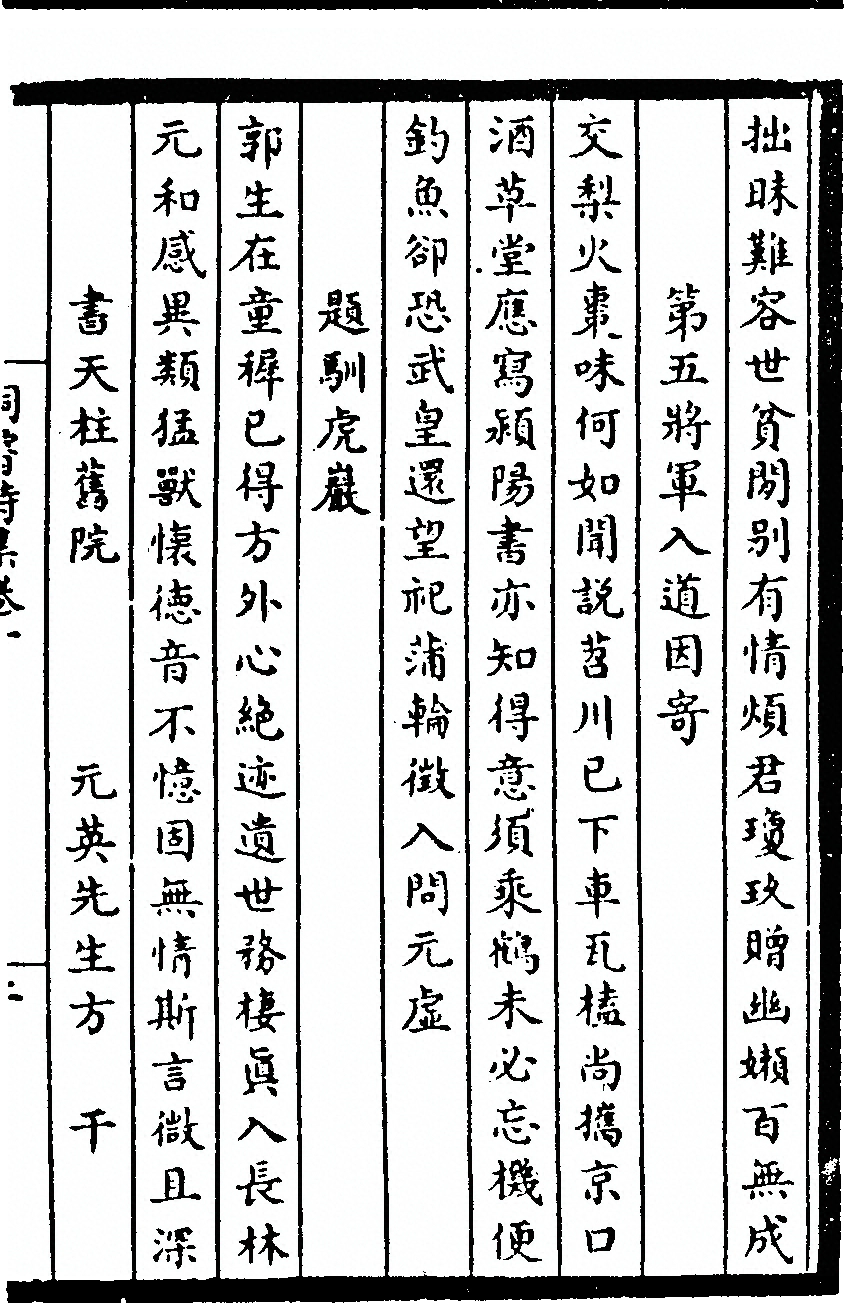 拙昧難容世貧閒别有情煩君瓊玖贈幽嬾百無成
第五將軍入道因寄
交梨火棗味何如聞説苕川已下車瓦榼尚攜京口
酒草堂應寫潁陽書亦知得意須乘鶴未必忘機便
釣魚卻恐武皇還望祀蒲輪徵入問元虛
題馴虎巖
郭生在童穉已得方外心絶迹遺世務棲眞入長林
元和感異類猛獸懷德音不憶固無情斯言微且深
書天柱舊院　元英先生方　干
洞霄詩集卷一
二